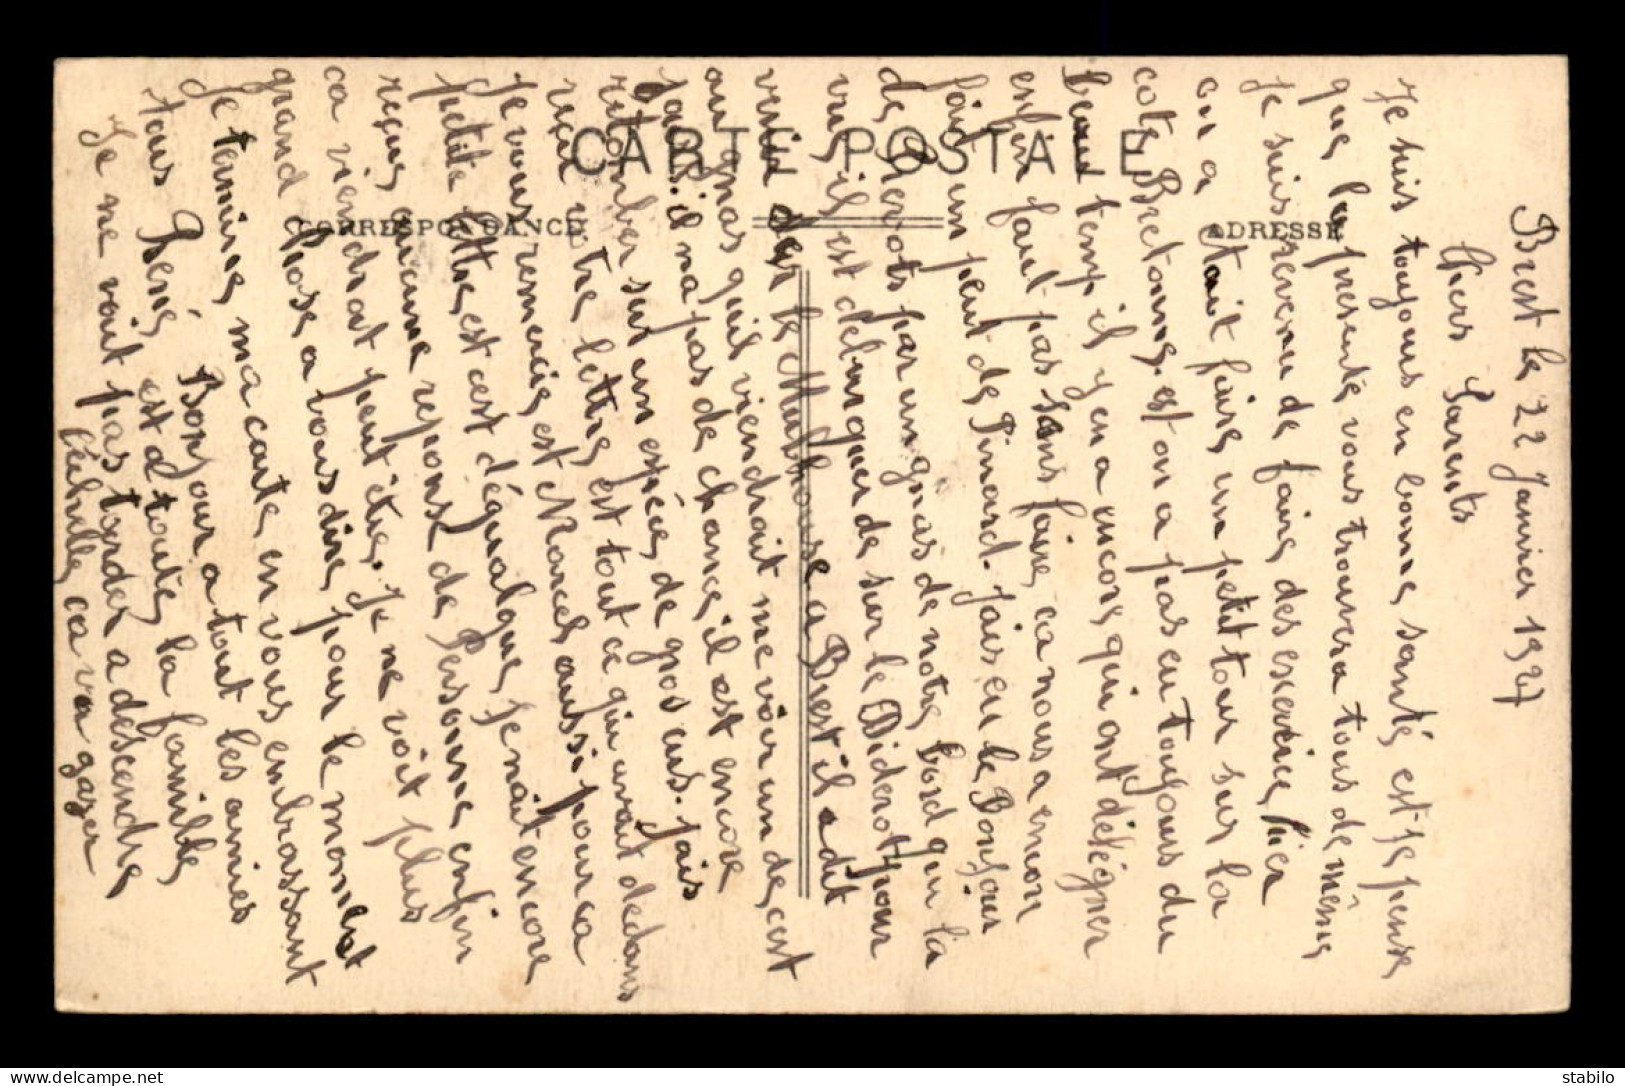 CARTE POSTALE
CORRESPONDANCE
ADRESSE
Brest le 22 Janvier 1927
Chers Parents
Je suis toujours en bonne santé, est je pense
que, la présente vous trouvera tous de même
Je suis revenu de faire, des exercice, hier
on a était faire, un petit tour sur la
cote Bretonne, est on a pas eu toujours du
beau temp il y en a encore, qui ont dégégner
enfin faut pas sans faire, ca nous a encor
fait un peut de Pinard. Jais eu le Bonjour
de Hervots par un gnas de notre, bord qui la
vue, il est délinquer de sur le Diderot pour
venir sur le Mulhouse a Brest il a dit
au gnas quil viendrait me voir un de, cest
jours. il na pas de chance, il est encore
retomber sur un espéce, de gros cus. Jais
reçu votre lettre, est tout ce qui avait dedans
Je vous remercie, est Marcel aussi pour ca
petite lettre, est cest déqualque, Je nait encore
reçue, aucune réponse de Personne, enfin
ca viendrat peut être. Je ne voit plus
grand chose a vous dire, pour le moment
Je termine, ma carte, en vous embrassant
tous Bonjour a tout les amies
René est a toute, la famille
Je ne vait pas tarder a descendre
ca va gazer
stabilo